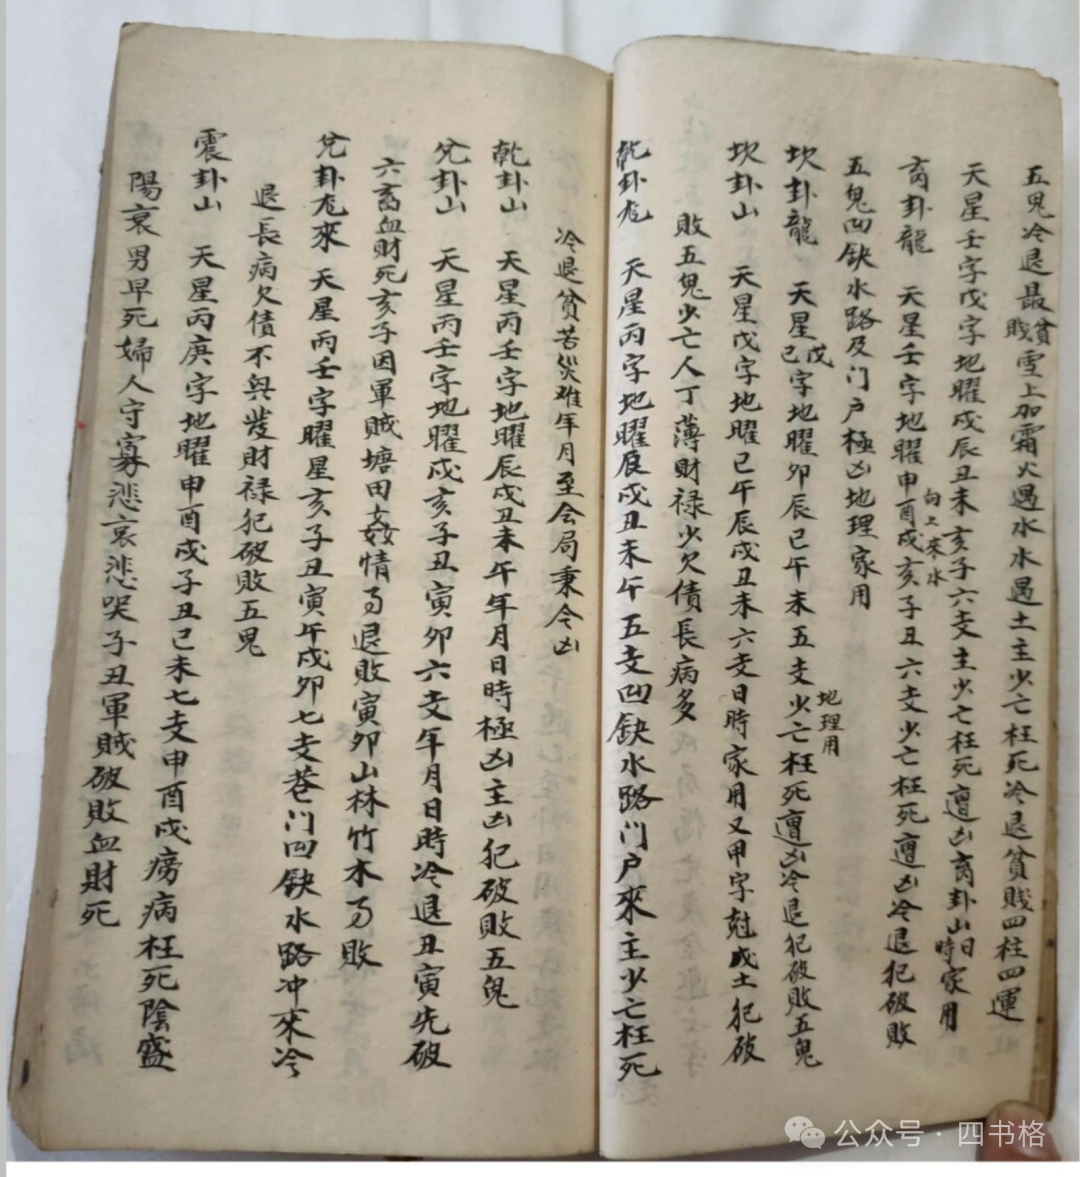 五鬼冷退最貧賤雪上加霜火遇水水遇土主少亡枉死冷退貧賤四柱四運
天星壬字戊字地曜戌辰丑未亥子六支主少亡枉死遭凶离卦山日時家用
离卦龍 天星壬字地曜申酉戌亥子丑六支少亡枉死遭凶冷退犯破敗
向上來水
五鬼凹缺水路及门户極凶地理家用
坎卦龍 天星戊己字地曜卯辰巳午未五支少亡枉死遭凶冷退犯破敗五鬼
地理用
坎卦山 天星戊字地曜巳午辰戌丑未六支日時家用又甲字尅戊土犯破
敗五鬼少亡人丁薄財禄少欠債長病多
乾卦龙 天星丙字地曜辰戌丑未午五支凹缺水路门户來主少亡枉死
冷退貧苦災难年月至会局秉令凶
乾卦山 天星丙壬字地曜辰戌丑未午年月日時極凶主凶犯破敗五鬼
兌卦山 天星丙壬字地曜戌亥子丑寅卯六支年月日時冷退丑寅先破
六畜血財死亥子因軍贼塘田姦情退敗寅卯山林竹木敗
兌卦龙來 天星丙壬字曜星亥子丑寅午戌卯七支巷门凹缺水路冲來冷
退長病欠債不興發財禄犯破敗五鬼
震卦山 天星丙庚字地曜申酉戌子丑巳未七支申酉戌痨病枉死陰盛
陽衰男早死婦人守寡悲哀悲哭子丑軍贼破敗血財死
公众号·四书格